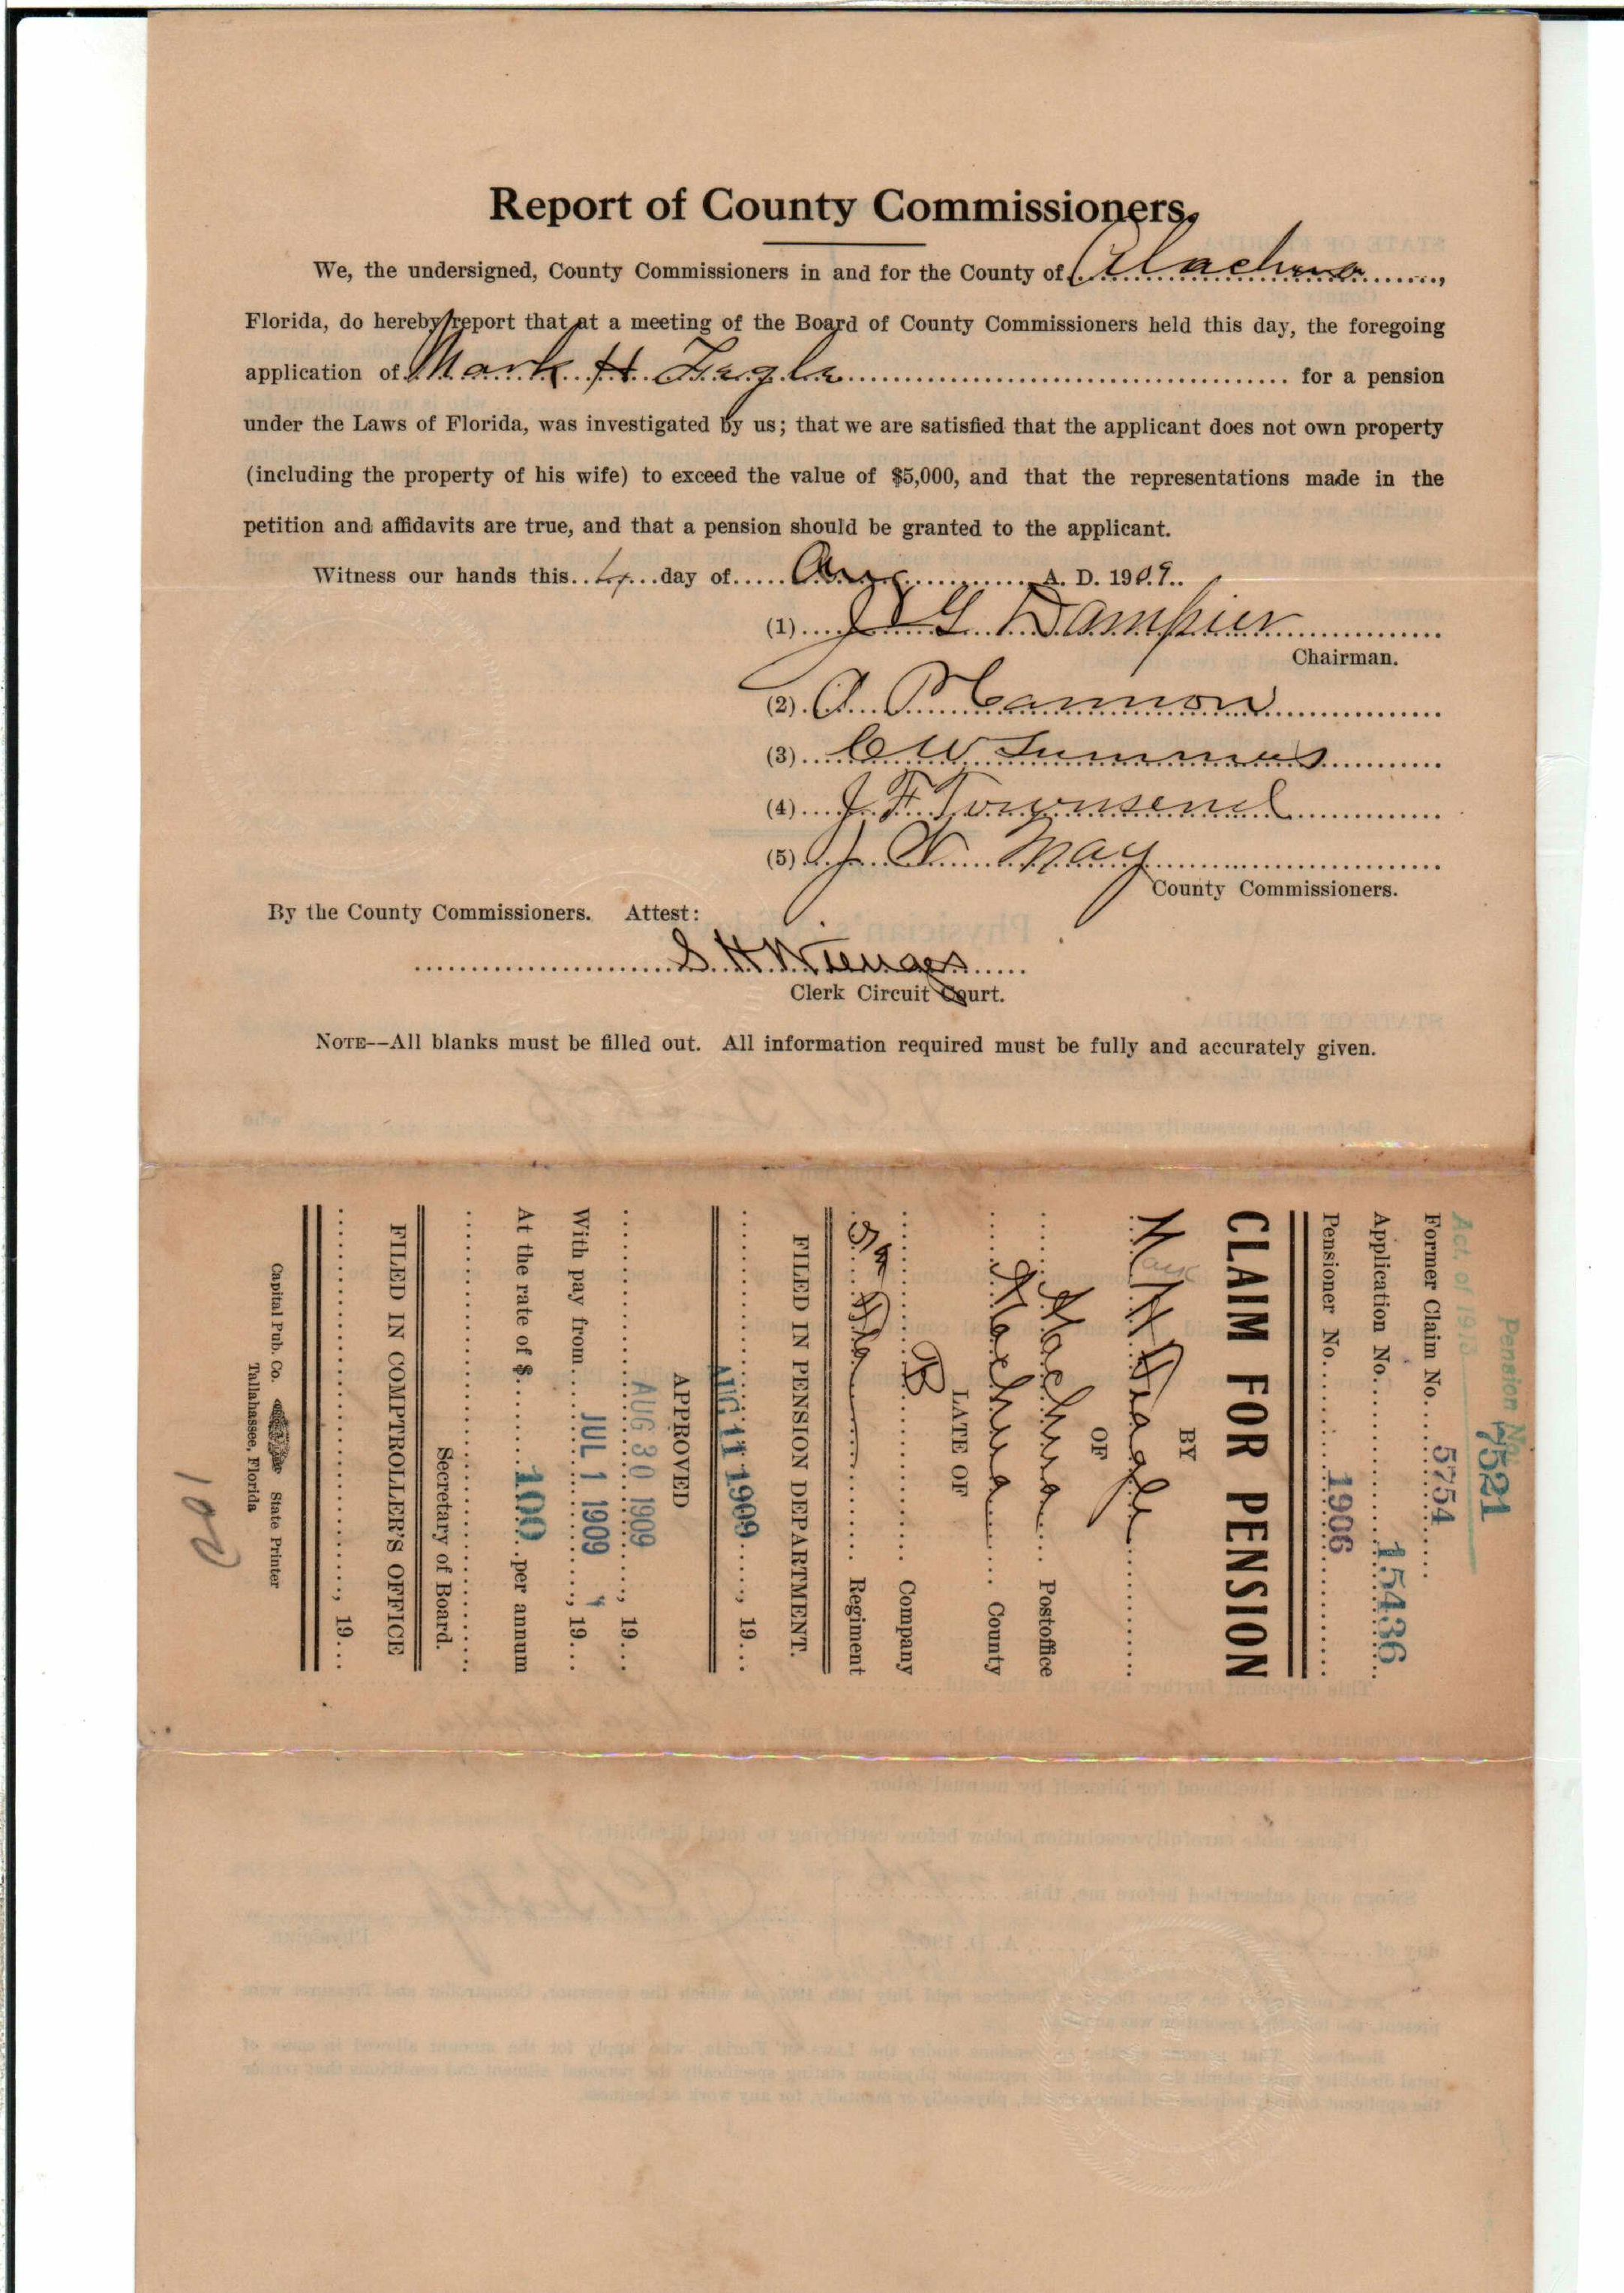 Report of County Commissioners.
We, the undersigned, County Commissioners in and for the County of Alachua,
Florida, do hereby report that at a meeting of the Board of County Commissioners held this day, the foregoing
application of Mark H. for a pension
under the Laws of Florida, was investigated by us; that we are satisfied that the applicant does not own property
(including the property of his wife) to exceed the value of $5,000, and that the representations made in the
petition and affidavits are true, and that a pension should be granted to the applicant.
Witness our hands this 4 day of Aug A. D. 1909.
(1) J G Dampier
Chairman.
(2) A. P. Cannon
(3) C W Summers
(4) J F Townsend
(5) J. May
County Commissioners.
By the County Commissioners. Attest:
S. H. Wienges
Clerk Circuit Court.
NOTE--All blanks must be filled out. All information required must be fully and accurately given.
Pension No. 7521
Act. of 1913
Former Claim No. 5754
Application No. 15436
Pensioner No. 1906
CLAIM FOR PENSION
BY
Mark H
OF
Alachua Postoffice
Alachua County
LATE OF
B Company
Regiment
FILED IN PENSION DEPARTMENT.
AUG 11 1909, 19
APPROVED
AUG 30 1909, 19
With pay from JUL 1 1909, 19
At the rate of $ 100 per annum
Secretary of Board.
FILED IN COMPTROLLER'S OFFICE
, 19
Capital Pub. Co. State Printer
Tallahassee, Florida